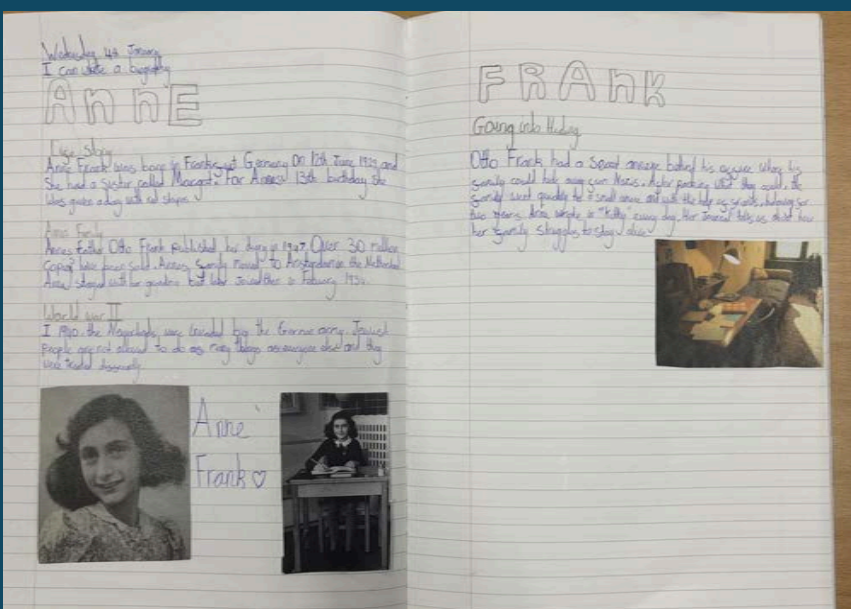 Wednesday 4th January
I can write a biography
AnnE
Life Story
Anne Frank was born in Frankfurt Germany On 12th June 1929 and
She had a sister called Margot. For Annes 13th birthday She
Was given a diary with red stripes.
Annes Family
Annes Father Otto Frank published her diary in 1947. Over 30 million
Copies have been sold. Annes family moved to Amsterdam the
Anne stayed with her but later Joined them in 1934.
World war II
I 1940 the were invaded by the German army. Jewish
People are not allowed to do as many things as everyone else and they
were treated
Anne
Frank
FRAnK
Going into Hiding
Otto Frank had a Secret annexe behind his office where his
family could hide away from Nazis. After packing what they could, the
family went quickly to a small annexe and with the help of friends, for
two years. Anne wrote in "Kitty" every day. Her Journal tells us about how
her family struggles to stay alive.